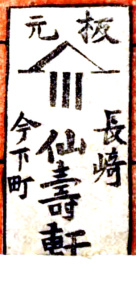 板元
長崎
仙壽軒
今下町